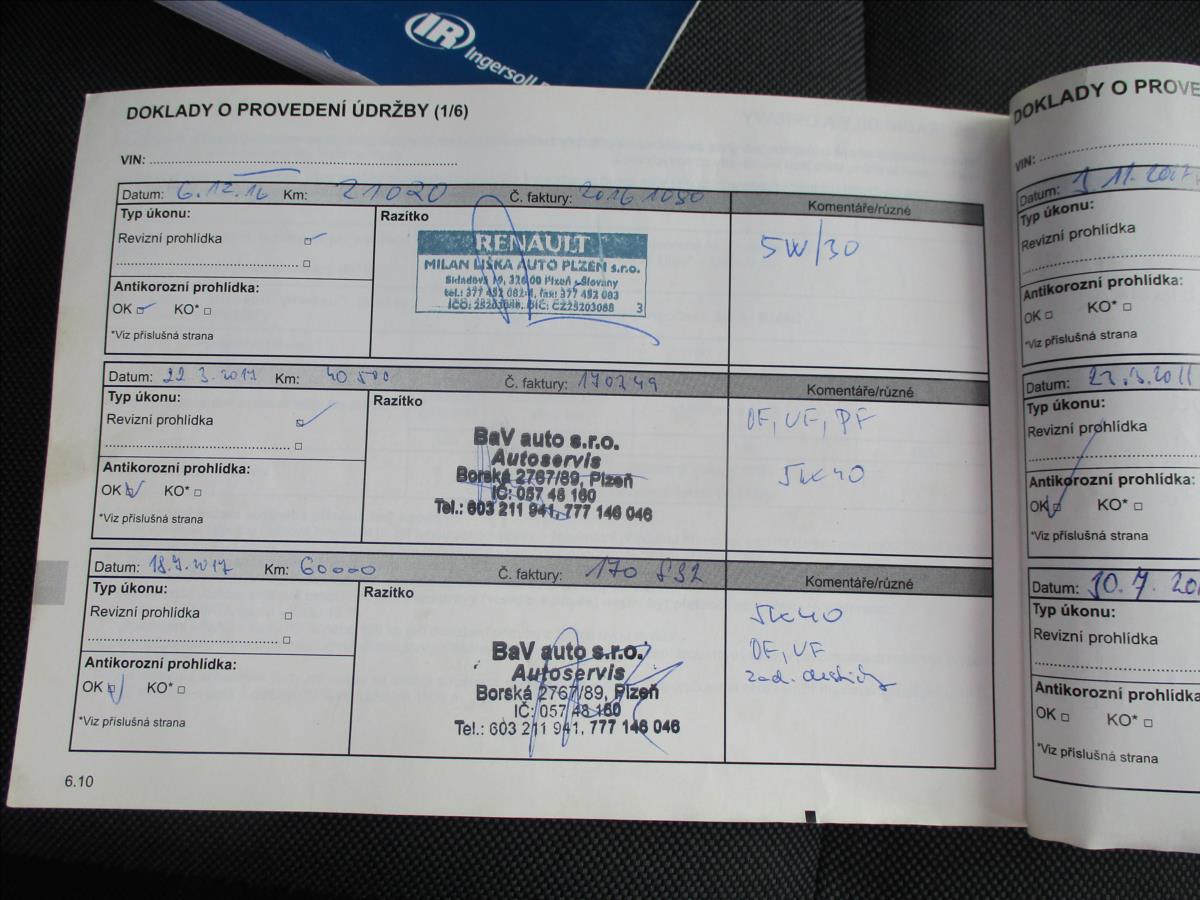 IR Ingersoll
DOKLADY O PROVEDENÍ ÚDRŽBY (1/6)
VIN:
Datum: 6.12.16 Km: 21020 Č. faktury: 20161080
Komentáře/různé
Typ úkonu:
Revizní prohlídka
Antikorozní prohlídka:
OK KO*
*Viz příslušná strana
Razítko
RENAULT
MILAN LIŠKA AUTO PLZEŇ s.r.o.
Skladová 19, 326 00 Plzeň - Slovany
tel.: 377 452 082-4, fax: 377 452 083
IČO: 25203088, DIČ: CZ25203088 3
5W/30
Datum: 22.3.2017 Km: 40 500 Č. faktury: 170249
Komentáře/různé
Typ úkonu:
Revizní prohlídka
Antikorozní prohlídka:
OK KO*
*Viz příslušná strana
Razítko
BaV auto s.r.o.
Autoservis
Borská 2767/89, Plzeň
IČ: 057 48 160
Tel.: 603 211 941, 777 146 046
OF, VF, PF
5W40
Datum: 18.7.2017 Km: 60000 Č. faktury: 170 532
Komentáře/různé
Typ úkonu:
Revizní prohlídka
Antikorozní prohlídka:
OK KO*
*Viz příslušná strana
Razítko
BaV auto s.r.o.
Autoservis
Borská 2767/89, Plzeň
IČ: 057 48 160
Tel.: 603 211 941, 777 146 046
5W40
OF, VF
zad. destičky
6.10
DOKLADY O PROVE
VIN:
Datum: 1.11.2017
Typ úkonu:
Revizní prohlídka
Antikorozní prohlídka:
OK KO*
*Viz příslušná strana
Datum:
Typ úkonu:
Revizní prohlídka
Antikorozní prohlídka:
OK KO*
*Viz příslušná strana
Datum: 10.7.20
Typ úkonu:
Revizní prohlídka
Antikorozní prohlídka
OK KO*
*Viz příslušná strana